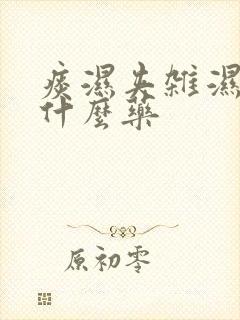 痰濕夾雜濕
什麼藥
原初零